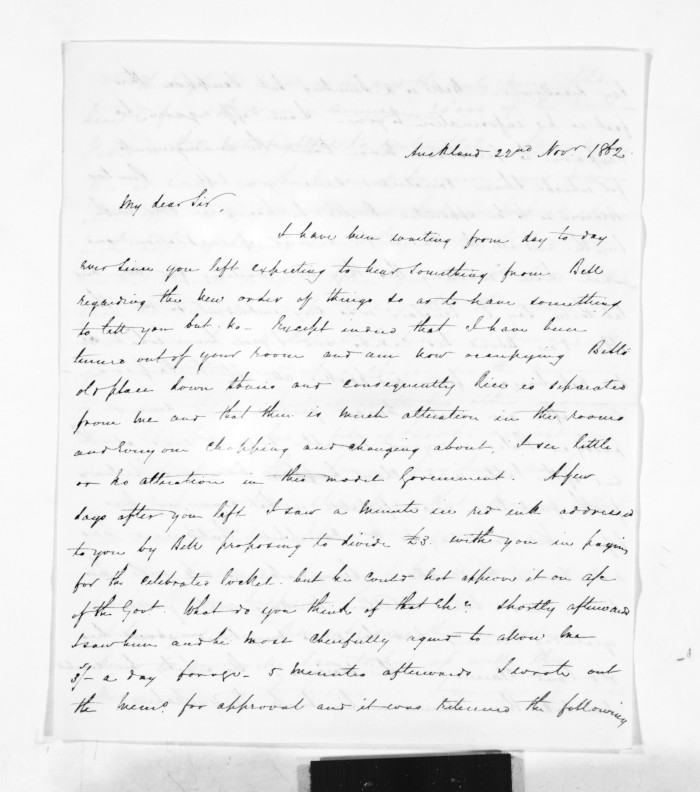 Auckland 22nd Novr 1862.
My dear Sir,
I have been waiting from day to day
ever since you left expecting to hear something from Bell
regarding the new order of things so as to have something
to tell you but no. Except indeed that I have been
turned out of your room and am now occupying Bell's
old place down stairs and consequently is separated
from me and that there is much alteration in the rooms
and everyone chopping and changing about, I see little
or no alteration in this model Government. A few
days after you left I saw a minute in red ink addressed
to you by Bell proposing to divide £3. with you in paying
for the celebrated locket. but he could not approve it on a/c
of the Govt. What do you think of that Eh? Shortly afterwards
I saw him and he most cheerfully agreed to allow me
5/- a day forage - 5 minutes afterwards I wrote out
the memo. for approval and it was returned the following